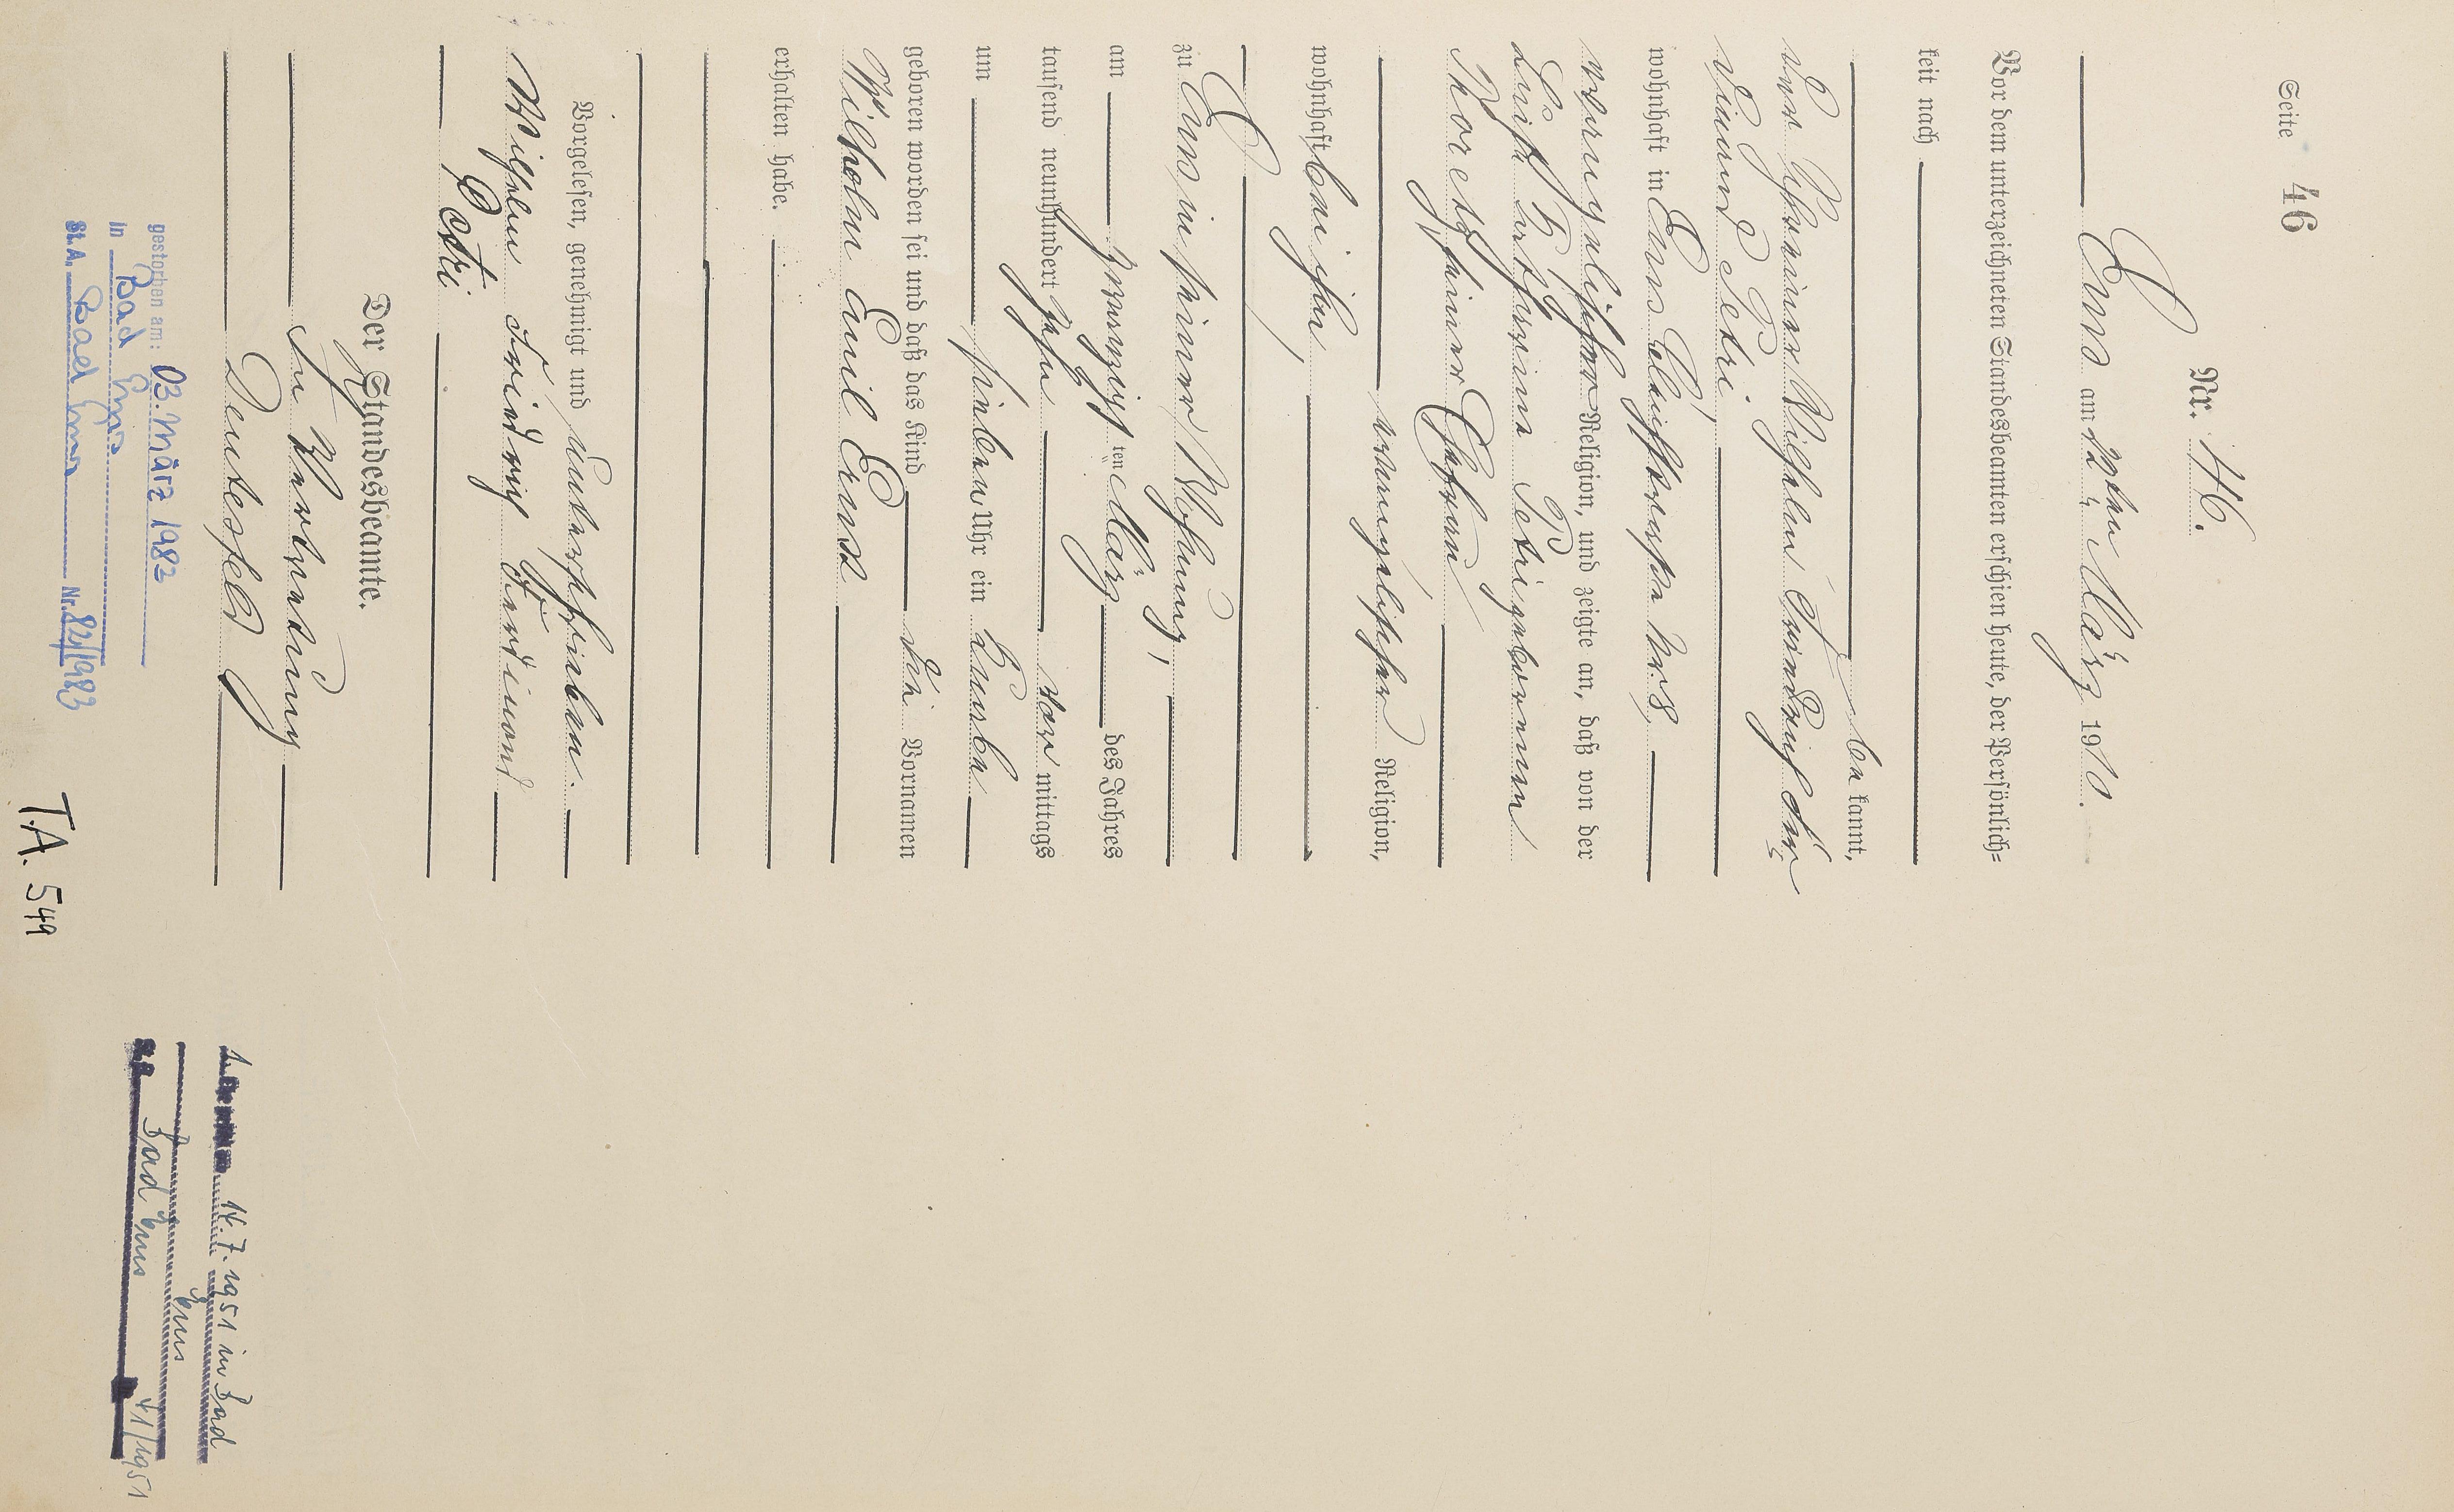 Seite 46
Nr. 46.
Ems am 22ten März 1910.
Vor dem unterzeichneten Standesbeamten erschien heute, der Persönlich=
keit nach
be kannt,
der Schreiner Wilhelm Friedrich Fer
dinand Petri,
wohnhaft in Ems Kleiststraße No. 8,
evangelischer Religion, und zeigte an, daß von der
Luise Katharina Petri geborenen
Moretz, seiner Ehefrau,
evangelischer Religion,
wohnhaft bei ihm,
zu Ems in seiner Wohnung,
am zwanzigsten März des Jahres
tausend neunhundert zehn vor mittags
um sieben Uhr ein Knabe
geboren worden sei und daß das Kind die Vornamen
Wilhelm Emil Ernst
erhalten habe.
Vorgelesen, genehmigt und unterschrieben.
Wilhelm Friedrich Ferdinand
Petri
Der Standesbeamte.
In Vertretung
gestorben am: 03. März 1982
in Bad Ems
St. A. Bad Ems Nr. 82/1983
T.A. 549
14.7.1951 in Bad
Ems
Bad Ems 41/1951